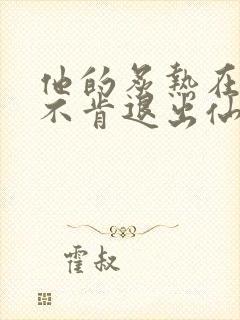 他的炙热在
不肯退出仙
霍叔